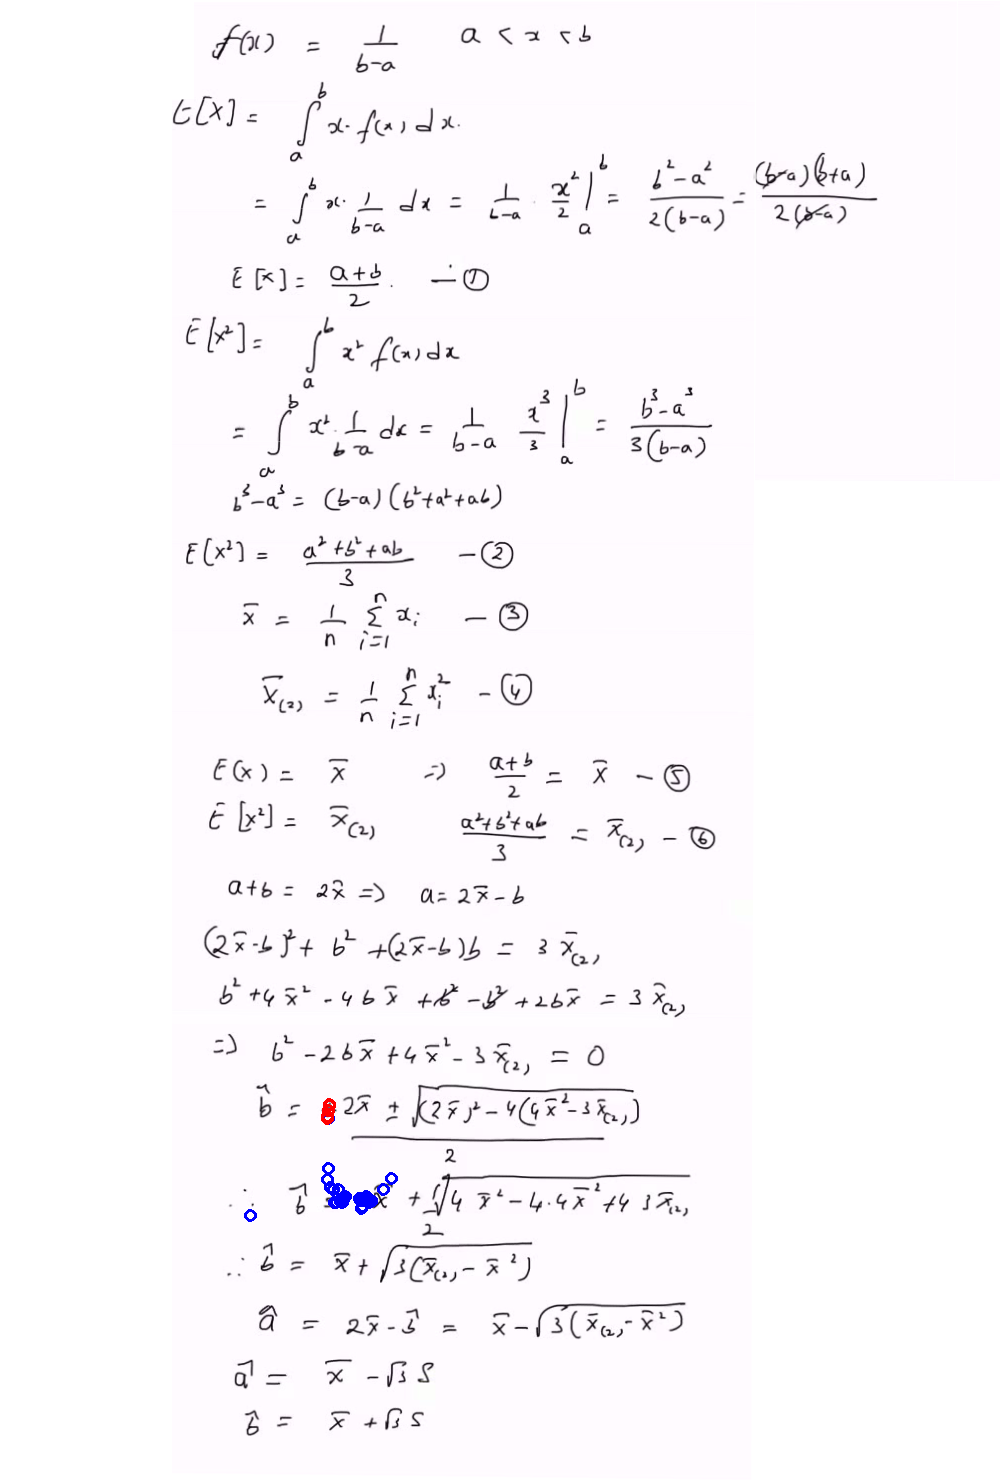 f(x) = 1/(b-a)   a < x < b
E[X] = ∫_a^b x. f(x) dx.
= ∫_a^b x. 1/(b-a) dx = 1/(b-a) . x²/2 |_a^b = (b²-a²)/(2(b-a)) = (b-a)(b+a)/(2(b-a))
E[x] = (a+b)/2 . — ①
E[x²] = ∫_a^b x² f(x) dx
= ∫_a^b x². 1/(b-a) dx = 1/(b-a) x³/3 |_a^b = (b³-a³)/(3(b-a))
b³-a³ = (b-a)(b²+a²+ab)
E[x²] = (a²+b²+ab)/3 — ②
x̄ = 1/n Σ_{i=1}^n x_i — ③
x̄_(2) = 1/n Σ_{i=1}^n x_i² — ④
E(x) = x̄ => (a+b)/2 = x̄ — ⑤
E[x²] = x̄_(2)   (a²+b²+ab)/3 = x̄_(2) — ⑥
a+b = 2x̄ => a = 2x̄-b
(2x̄-b)² + b² + (2x̄-b)b = 3 x̄_(2)
b² + 4x̄² - 4bx̄ + b² - b² + 2bx̄ = 3 x̄_(2)
=> b² - 2bx̄ + 4x̄² - 3x̄_(2) = 0
b̂ = (2x̄ ± √((2x̄)² - 4(4x̄² - 3x̄_(2))))/2
∴ b̂ x̄ + √(4x̄² - 4.4x̄² + 4 3x̄_(2))/2
∴ b̂ = x̄ + √(3(x̄_(2) - x̄²))
â = 2x̄ - b̂ = x̄ - √(3(x̄_(2) - x̄²))
â = x̄ - √3 S
b̂ = x̄ + √3 S